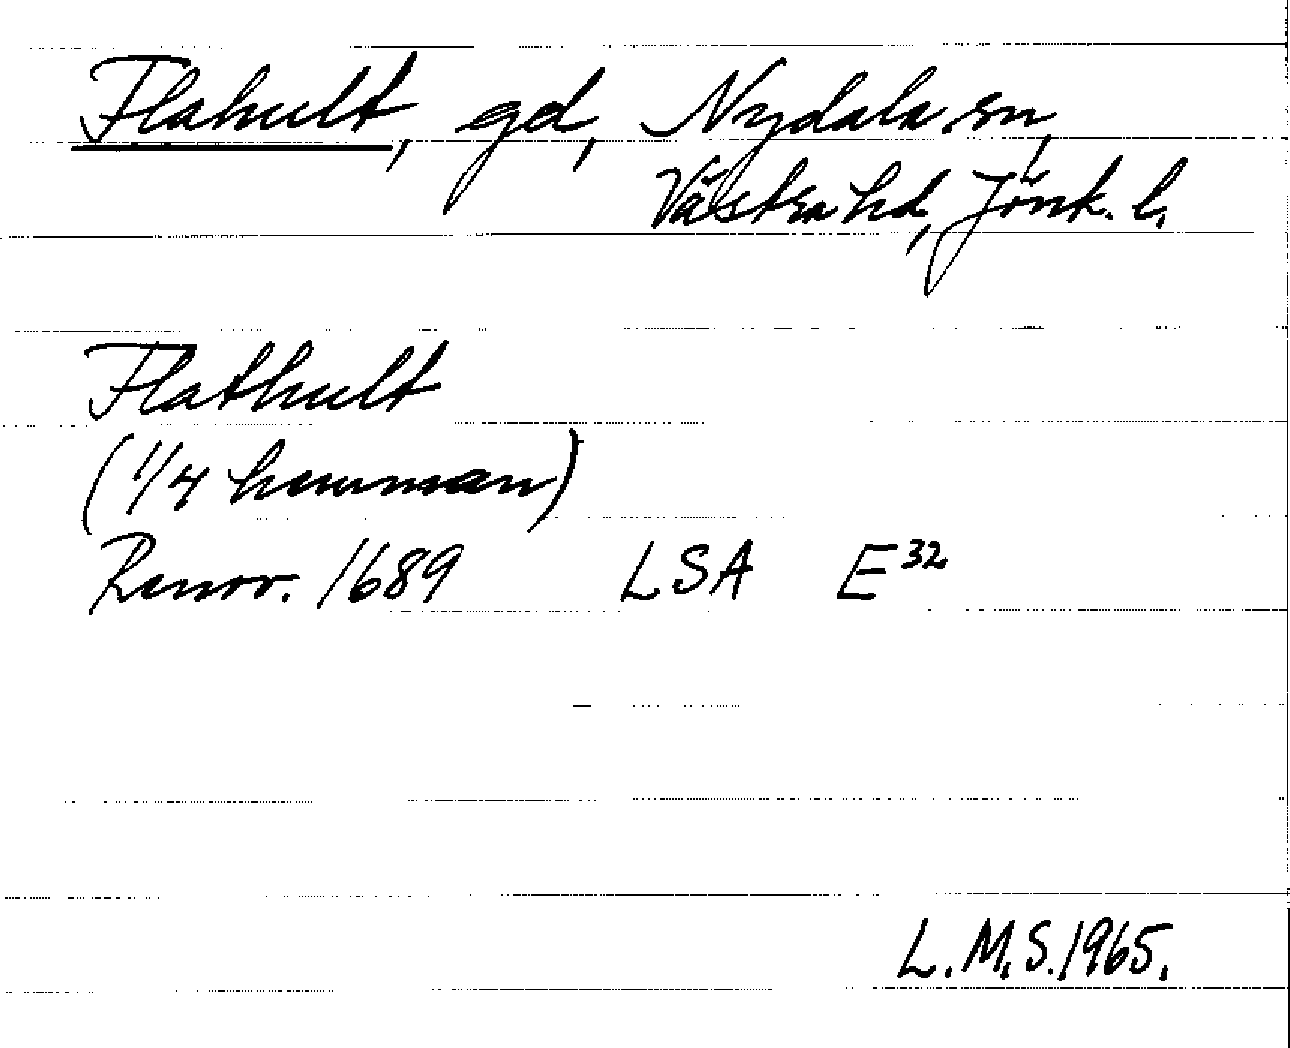 Flahult, gd, Nydala sn,
Västra hd, Jönk. l.
Flathult
(1/4 hemman)
Renov. 1689 LSA E³²
L.M.S. 1965.